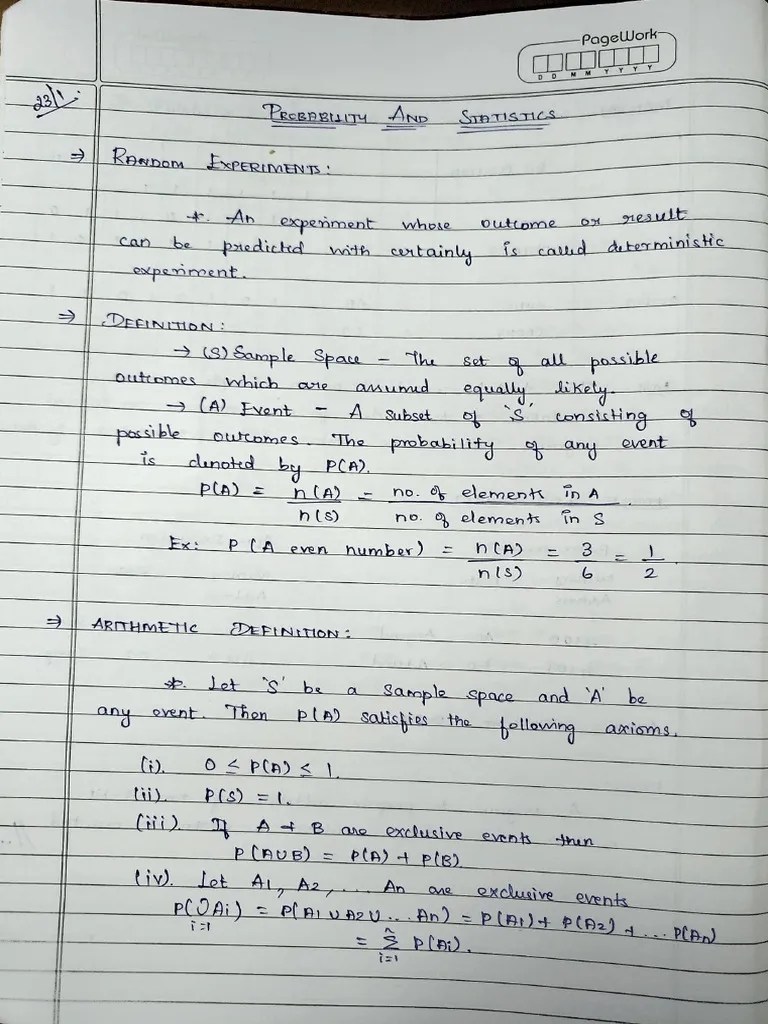 PageWork
D D M M Y Y Y Y
23/1.
PROBABILITY AND STATISTICS
⇒ RANDOM EXPERIMENTS:
*. An experiment whose outcome or result
can be predicted with certainly is called deterministic
experiment.
⇒ DEFINITION:
→ (S) Sample Space - The set of all possible
outcomes which are assumed equally likely.
→ (A) Event - A subset of 'S' consisting of
possible outcomes. The probability of any event
is denoted by P(A).
P(A) = n(A)/n(S) = no. of elements in A/no. of elements in S.
Ex: P (A even number) = n(A)/n(S) = 3/6 = 1/2.
⇒ ARITHMETIC DEFINITION:
*. Let 'S' be a sample space and 'A' be
any event. Then P(A) satisfies the following axioms.
(i). 0 ≤ P(A) ≤ 1.
(ii). P(S) = 1.
(iii). If A + B are exclusive events then
P(A∪B) = P(A) + P(B).
(iv). Let A1, A2, ... An are exclusive events
P(∪Ai) = P(A1 ∪ A2 ∪ ... An) = P(A1) + P(A2) + ... P(An)
i=1
= n∑i=1 P(Ai).